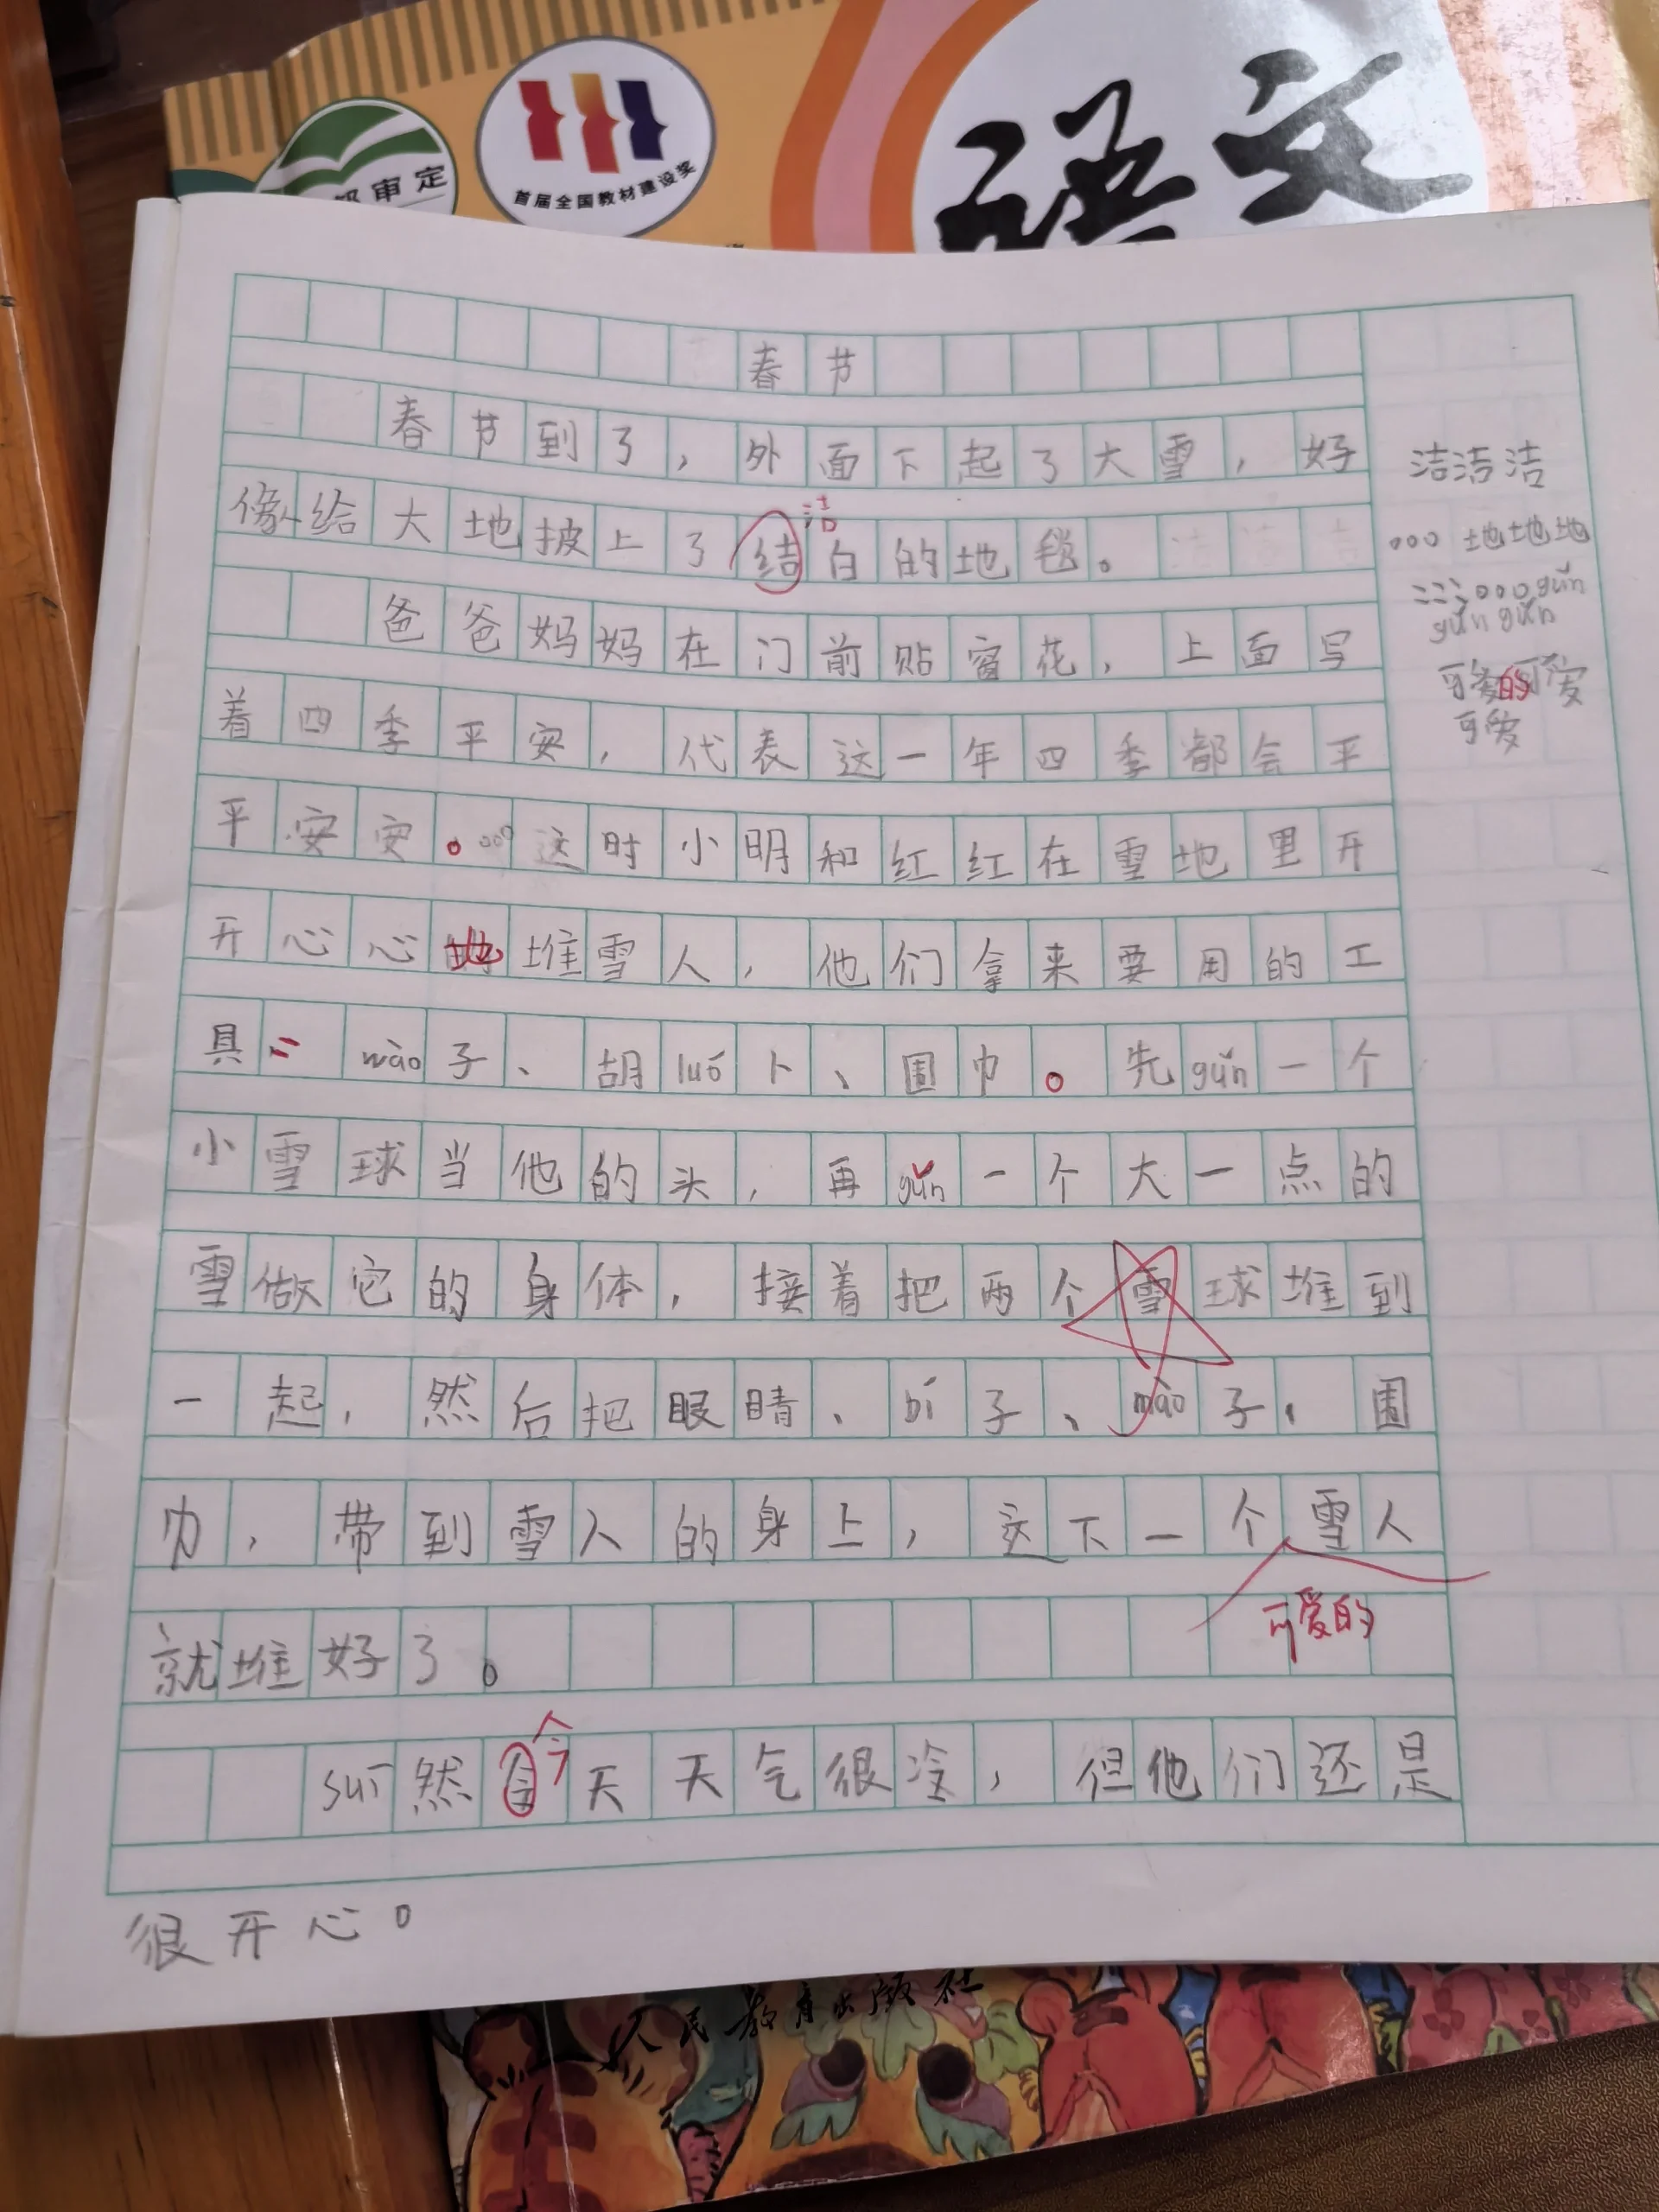 部审定
首届全国教材建设奖
语文
春节
春节到了，外面下起了大雪，好
洁
像给大地披上了结白的地毯。
爸爸妈妈在门前贴窗花，上面写
着四季平安，代表这一年四季都会平
平安安。这时小明和红红在雪地里开
开心心地堆雪人，他们拿来要用的工
具：mào子、胡luó卜、围巾。先gǔn一个
小雪球当他的头，再gǔn一个大一点的
雪做它的身体，接着把两个雪球堆到
一起，然后把眼睛、bí子、mào子，围
巾，带到雪人的身上，这下一个雪人
可爱的
就堆好了。
今
suī然今天天气很冷，但他们还是
很开心。
洁洁洁
。。。地地地
：：：。。。gǔn
gǔn gǔn
可爱的可爱
可爱
人民教育出版社